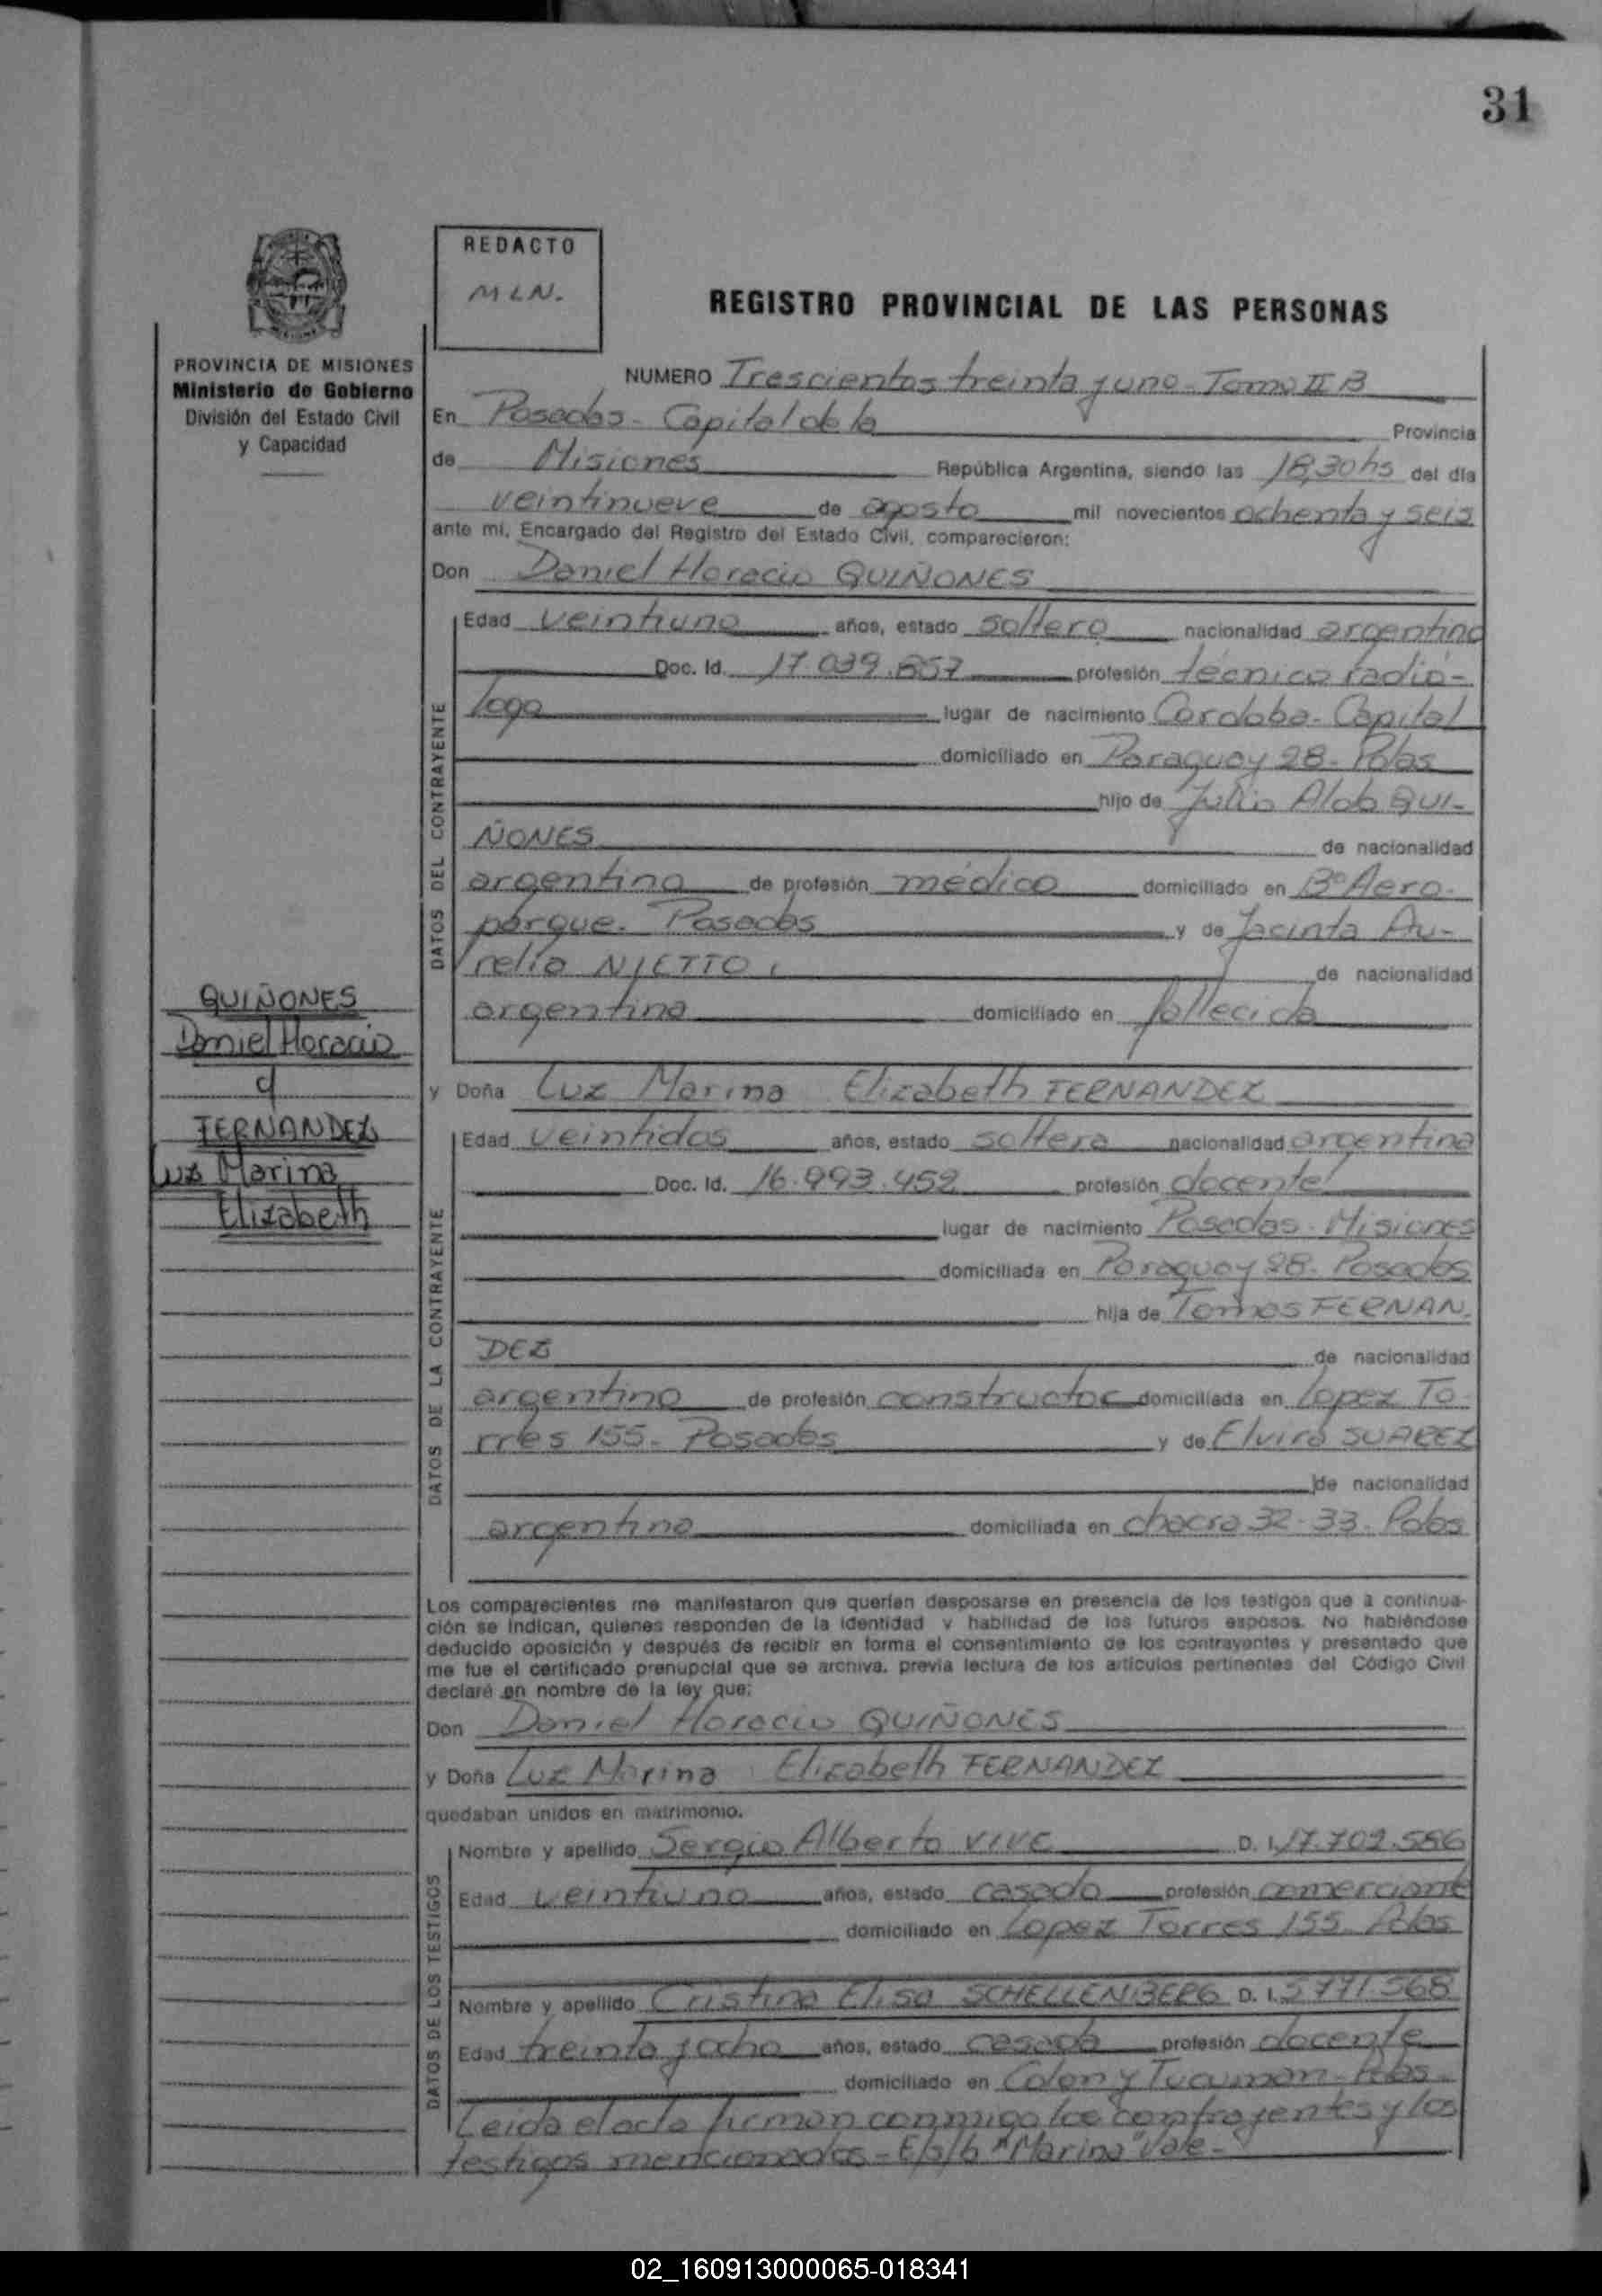 31
REDACTO
MLN.
REGISTRO PROVINCIAL DE LAS PERSONAS
PROVINCIA DE MISIONES
Ministerio de Gobierno
División del Estado Civil
y Capacidad
NUMERO Trescientos treinta y uno - Tomo II B
En Posadas - Capital de la Provincia
de Misiones República Argentina, siendo las 18,30hs del día
veintinueve de agosto mil novecientos ochenta y seis
ante mí, Encargado del Registro del Estado Civil, comparecieron:
Don Daniel Horacio QUIÑONES
DATOS DEL CONTRAYENTE
Edad veintiuno años, estado soltero nacionalidad argentino
Doc. Id. 17.039.857 profesión técnico radió-
logo lugar de nacimiento Cordoba - Capital
domiciliado en Paraguay 28 - Pdas
hijo de Julio Aldo QUI-
ÑONES de nacionalidad
argentina de profesión médico domiciliado en Bº Aero-
parque. Posadas y de Jacinta Au-
relia NIETTO de nacionalidad
argentina domiciliado en fallecida
QUIÑONES
Daniel Horacio
y
FERNANDEZ
Luz Marina
Elizabeth
y Doña Luz Marina Elizabeth FERNANDEZ
DATOS DE LA CONTRAYENTE
Edad veintidos años, estado soltera nacionalidad argentina
Doc. Id. 16.993.452 profesión docente
lugar de nacimiento Posadas - Misiones
domiciliada en Paraguay 28 - Posadas
hija de Tomas FERNAN-
DEZ de nacionalidad
argentino de profesión constructor domiciliada en Lopez To-
rres 155 - Posadas y de Elvira SUAREZ
de nacionalidad
argentina domiciliada en chacra 32-33 - Pdas
Los comparecientes me manifestaron que querían desposarse en presencia de los testigos que a continua-
ción se indican, quienes responden de la identidad y habilidad de los futuros esposos. No habiéndose
deducido oposición y después de recibir en forma el consentimiento de los contrayentes y presentado que
me fue el certificado prenupcial que se archiva, previa lectura de los artículos pertinentes del Código Civil
declaré en nombre de la ley que:
Don Daniel Horacio QUIÑONES
y Doña Luz Marina Elizabeth FERNANDEZ
quedaban unidos en matrimonio.
DATOS DE LOS TESTIGOS
Nombre y apellido Sergio Alberto VIVE D. I. 17.702.586
Edad veintiuno años, estado casado profesión comerciante
domiciliado en Lopez Torres 155 - Pdas
Nombre y apellido Cristina Elisa SCHELLENBERG D. I. 5771.568
Edad treinta y ocho años, estado casada profesión docente
domiciliado en Colon y Tucuman - Pdas -
Leida el acta firman conmigo los contrayentes y los
testigos mencionados - E/p/b "Marina" Vale -
02_160913000065-018341